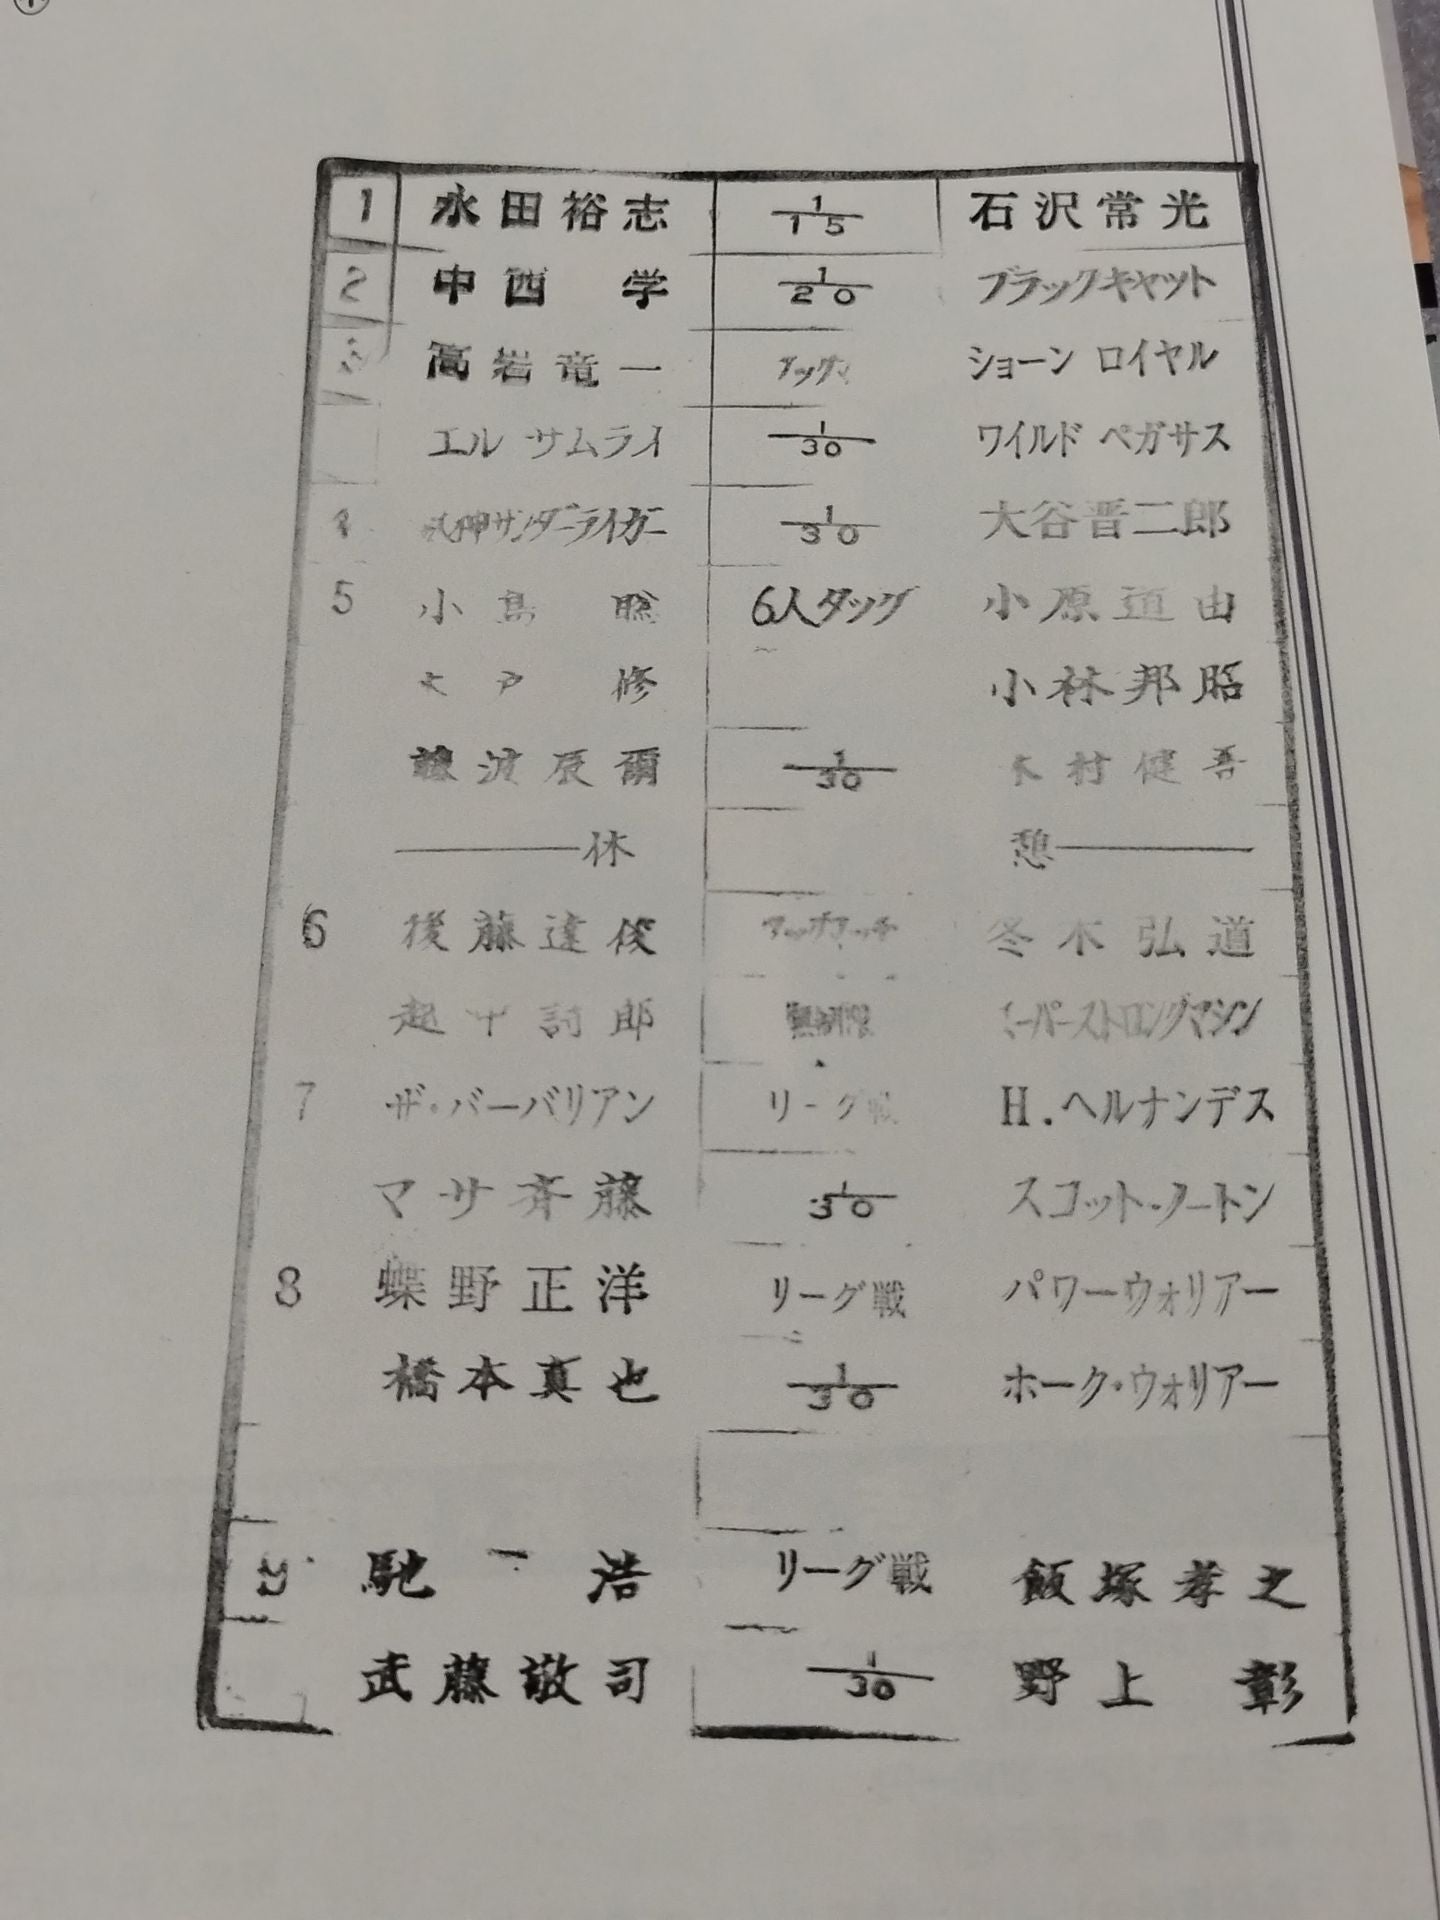 1 永田裕志 1/15 石沢常光
2 中西 学 1/20 ブラックキャット
高岩竜一 ショーン ロイヤル
エル サムライ 1/30 ワイルド ペガサス
4 獣神サンダーライガー 1/30 大谷晋二郎
5 小島 聡 6人タッグ 小原道由
木戸 修 小林邦昭
藤波辰爾 1/30 木村健吾
休 憩
6 後藤達俊 タッグマッチ 冬木弘道
越中詩郎 無制限 スーパーストロングマシン
7 ザ・バーバリアン リーグ戦 H.ヘルナンデス
マサ斉藤 1/30 スコット・ノートン
8 蝶野正洋 リーグ戦 パワーウォリアー
橋本真也 1/30 ホーク・ウォリアー
馳 浩 リーグ戦 飯塚孝之
武藤敬司 1/30 野上 彰